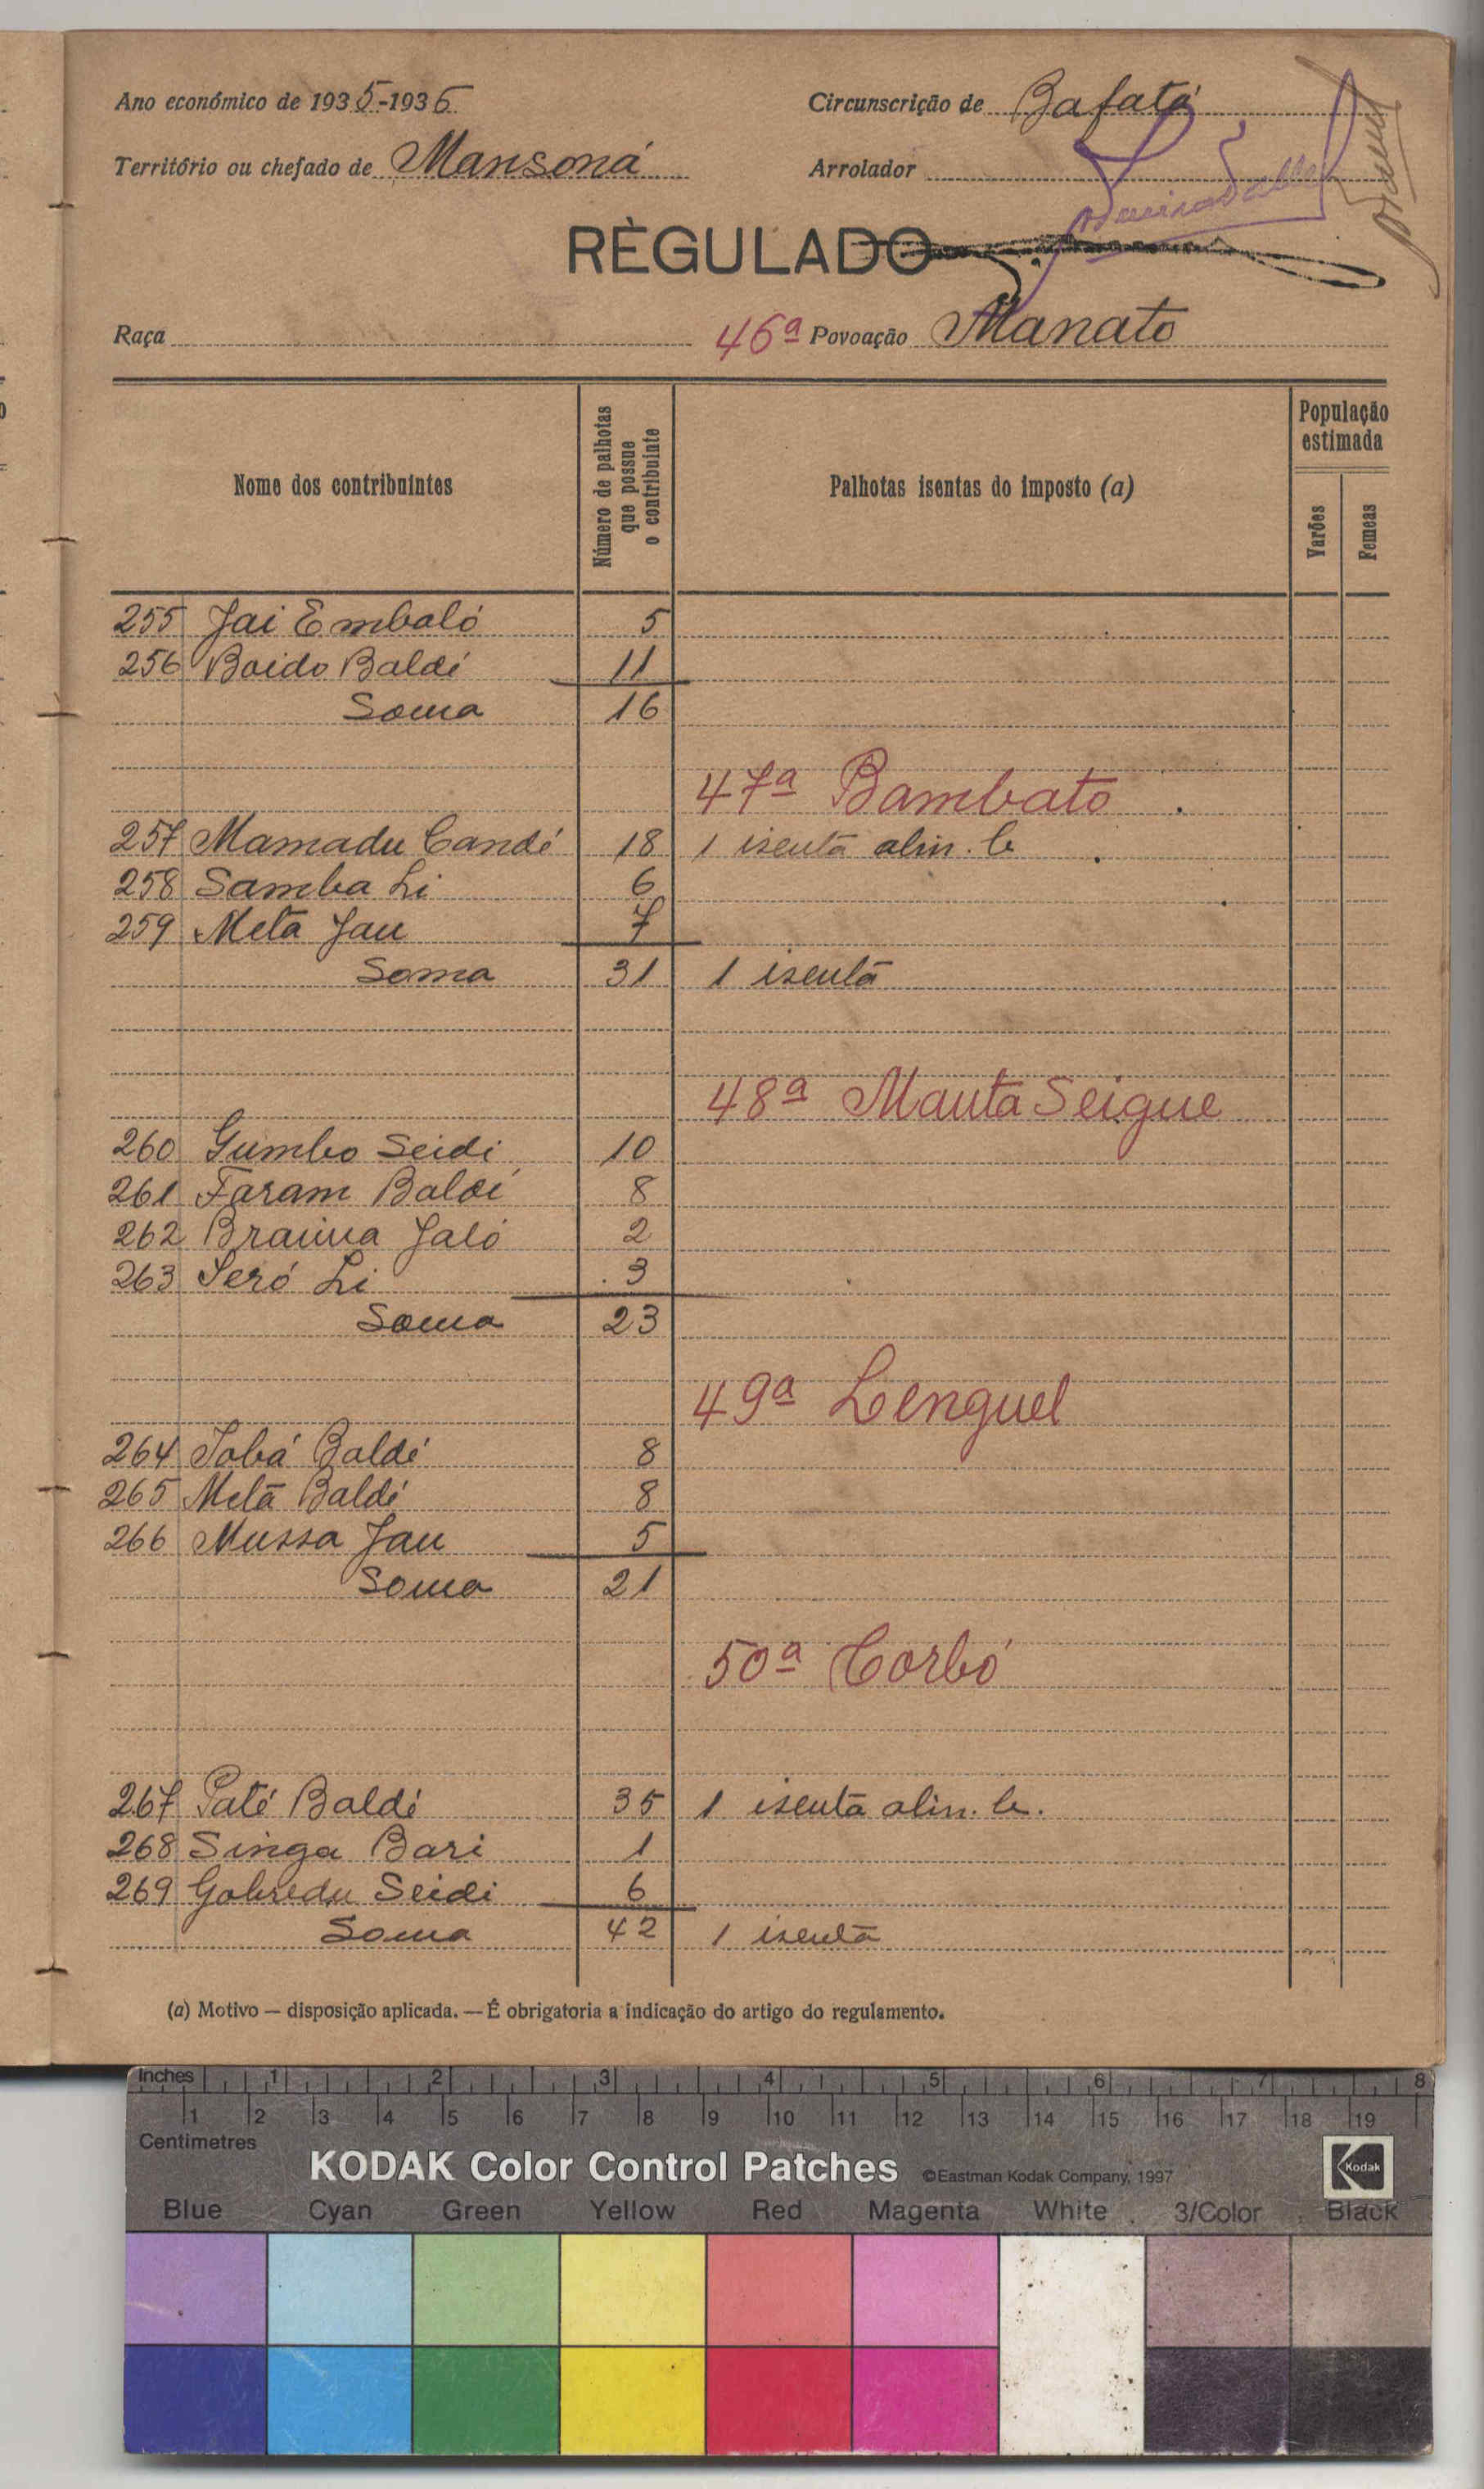 Ano económico de 1935-1936
Circunscrição de Bafatá
Território ou chefado de Mansoná
Arrolador
RÈGULADO
Raça
46ª Povoação Manato
Nome dos contribuintes
Número de palhotas que possue o contribuinte
Palhotas isentas do imposto (a)
População estimada
Varões
Femeas
255 Jai Embaló 5
256 Boido Baldé 11
Soma 16
47ª Bambato
257 Mamadu Candé 18 1 isenta alin. b
258 Samba Li 6
259 Meta Jau 7
Soma 31 1 isenta
48ª Manta Seigue
260 Gumbo Seidi 10
261 Faram Baldé 8
262 Braima Jaló 2
263 Seró Li 3
Soma 23
49ª Lenguel
264 Jobá Baldé 8
265 Meta Baldé 8
266 Mussa Jau 5
Soma 21
50ª Corbó
267 Paté Baldé 35 1 isenta alin. b.
268 Singa Bari 1
269 Seidi 6
Soma 42 1 isenta
(a) Motivo — disposição aplicada. — É obrigatoria a indicação do artigo do regulamento.
Inches 1 2 3 4 5 6 7 8
1 2 3 4 5 6 7 8 9 10 11 12 13 14 15 16 17 18 19
Centimetres
KODAK Color Control Patches ©Eastman Kodak Company, 1997 Kodak
Blue Cyan Green Yellow Red Magenta White 3/Color Black